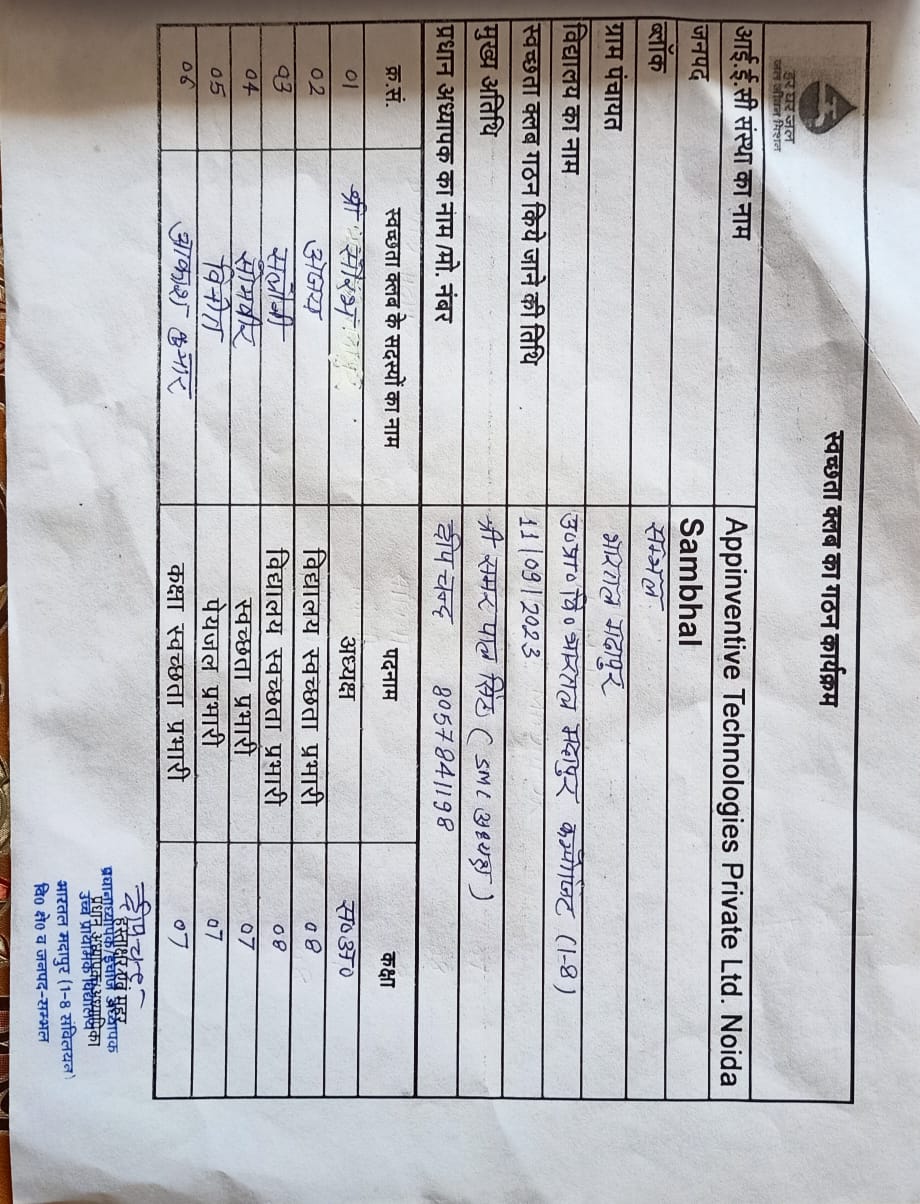 हर घर जल
जल जीवन मिशन
स्वच्छता क्लब का गठन कार्यक्रम
आई.ई.सी संस्था का नाम Appinventive Technologies Private Ltd. Noida
जनपद Sambhal
ब्लॉक सम्भल
ग्राम पंचायत भारतल मदापुर
विद्यालय का नाम उ०प्रा०वि० भारतल मदापुर कम्पोजिट (1-8)
स्वच्छता क्लब गठन किये जाने की तिथि 11/09/2023
मुख्य अतिथि श्री समर पाल सिंह (SMC अध्यक्ष)
प्रधान अध्यापक का नांम /मो. नंबर दीप चन्द 8057841198
क्र.सं. स्वच्छता क्लब के सदस्यों का नाम पदनाम कक्षा
01 श्री अध्यक्ष स०अ०
02 विद्यालय स्वच्छता प्रभारी 08
03 विद्यालय स्वच्छता प्रभारी 08
04 सोमवीर स्वच्छता प्रभारी 07
05 विनीत पेयजल प्रभारी 07
06 आकाश कुमार कक्षा स्वच्छता प्रभारी 07
दीप चन्द
हस्ताक्षर एवं मुहर
प्रधानाध्यापक/इंचार्ज अध्यापक
प्रधान अध्यापक/अध्यापिका
उच्च प्राथमिक विद्यालय
भारतल मदापुर (1-8 संविलयन)
वि० क्षे० व जनपद-सम्भल